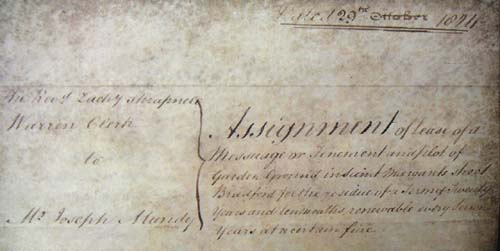 Dated 29th October 1824
The Revd. Zachy Shrapnell
Warren Clerk
to
Mr. Joseph Mundy
Assignment of Lease of a
Messuage or Tenement and plot of
Garden Ground in Saint Margarets Street
Bradford for the residue of a Term of Twenty
Years and ten months, renewable every Seven
Years at a certain fine